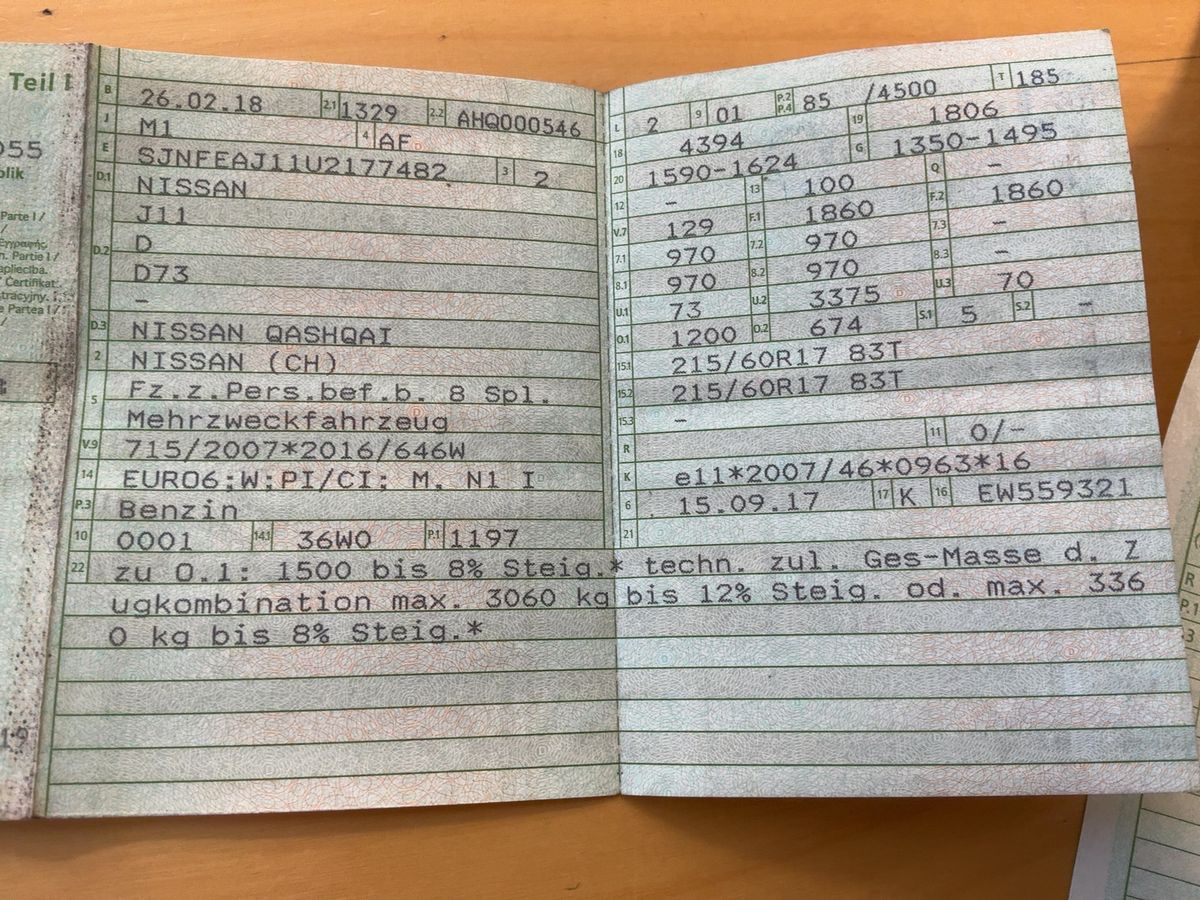 Teil I
055
blik
Parte I /
Εγγραφής
n. Partie I /
apliecība.
Certifikat
stracyjny.
Partea I /
19
B 26.02.18 2.1 1329 2.2 AHQ000546
J M1 4 AF
E SJNFEAJ11U2177482 3 2
D.1 NISSAN
J11
D.2 D
D73
–
D.3 NISSAN QASHQAI
2 NISSAN (CH)
5 Fz.z.Pers.bef.b. 8 Spl.
Mehrzweckfahrzeug
V.9 715/2007*2016/646W
14 EURO6;W;PI/CI; M, N1 I
P.3 Benzin
10 0001 14.1 36W0 P.1 1197
L 2 9 01 P.2 P.4 85 /4500 T 185
18 4394 19 1806
20 1590-1624 G 1350-1495
12 – 13 100 Q –
V.7 129 F.1 1860 F.2 1860
7.1 970 7.2 970 7.3 –
8.1 970 8.2 970 8.3 –
U.1 73 U.2 3375 U.3 70
O.1 1200 O.2 674 S.1 5 S.2 –
15.1 215/60R17 83T
15.2 215/60R17 83T
15.3 –
R 11 0/–
K e11*2007/46*0963*16
6 15.09.17 17 K 16 EW559321
21
22 zu O.1: 1500 bis 8% Steig.* techn. zul. Ges-Masse d. Z
ugkombination max. 3060 kg bis 12% Steig. od. max. 336
0 kg bis 8% Steig.*
R
P.1